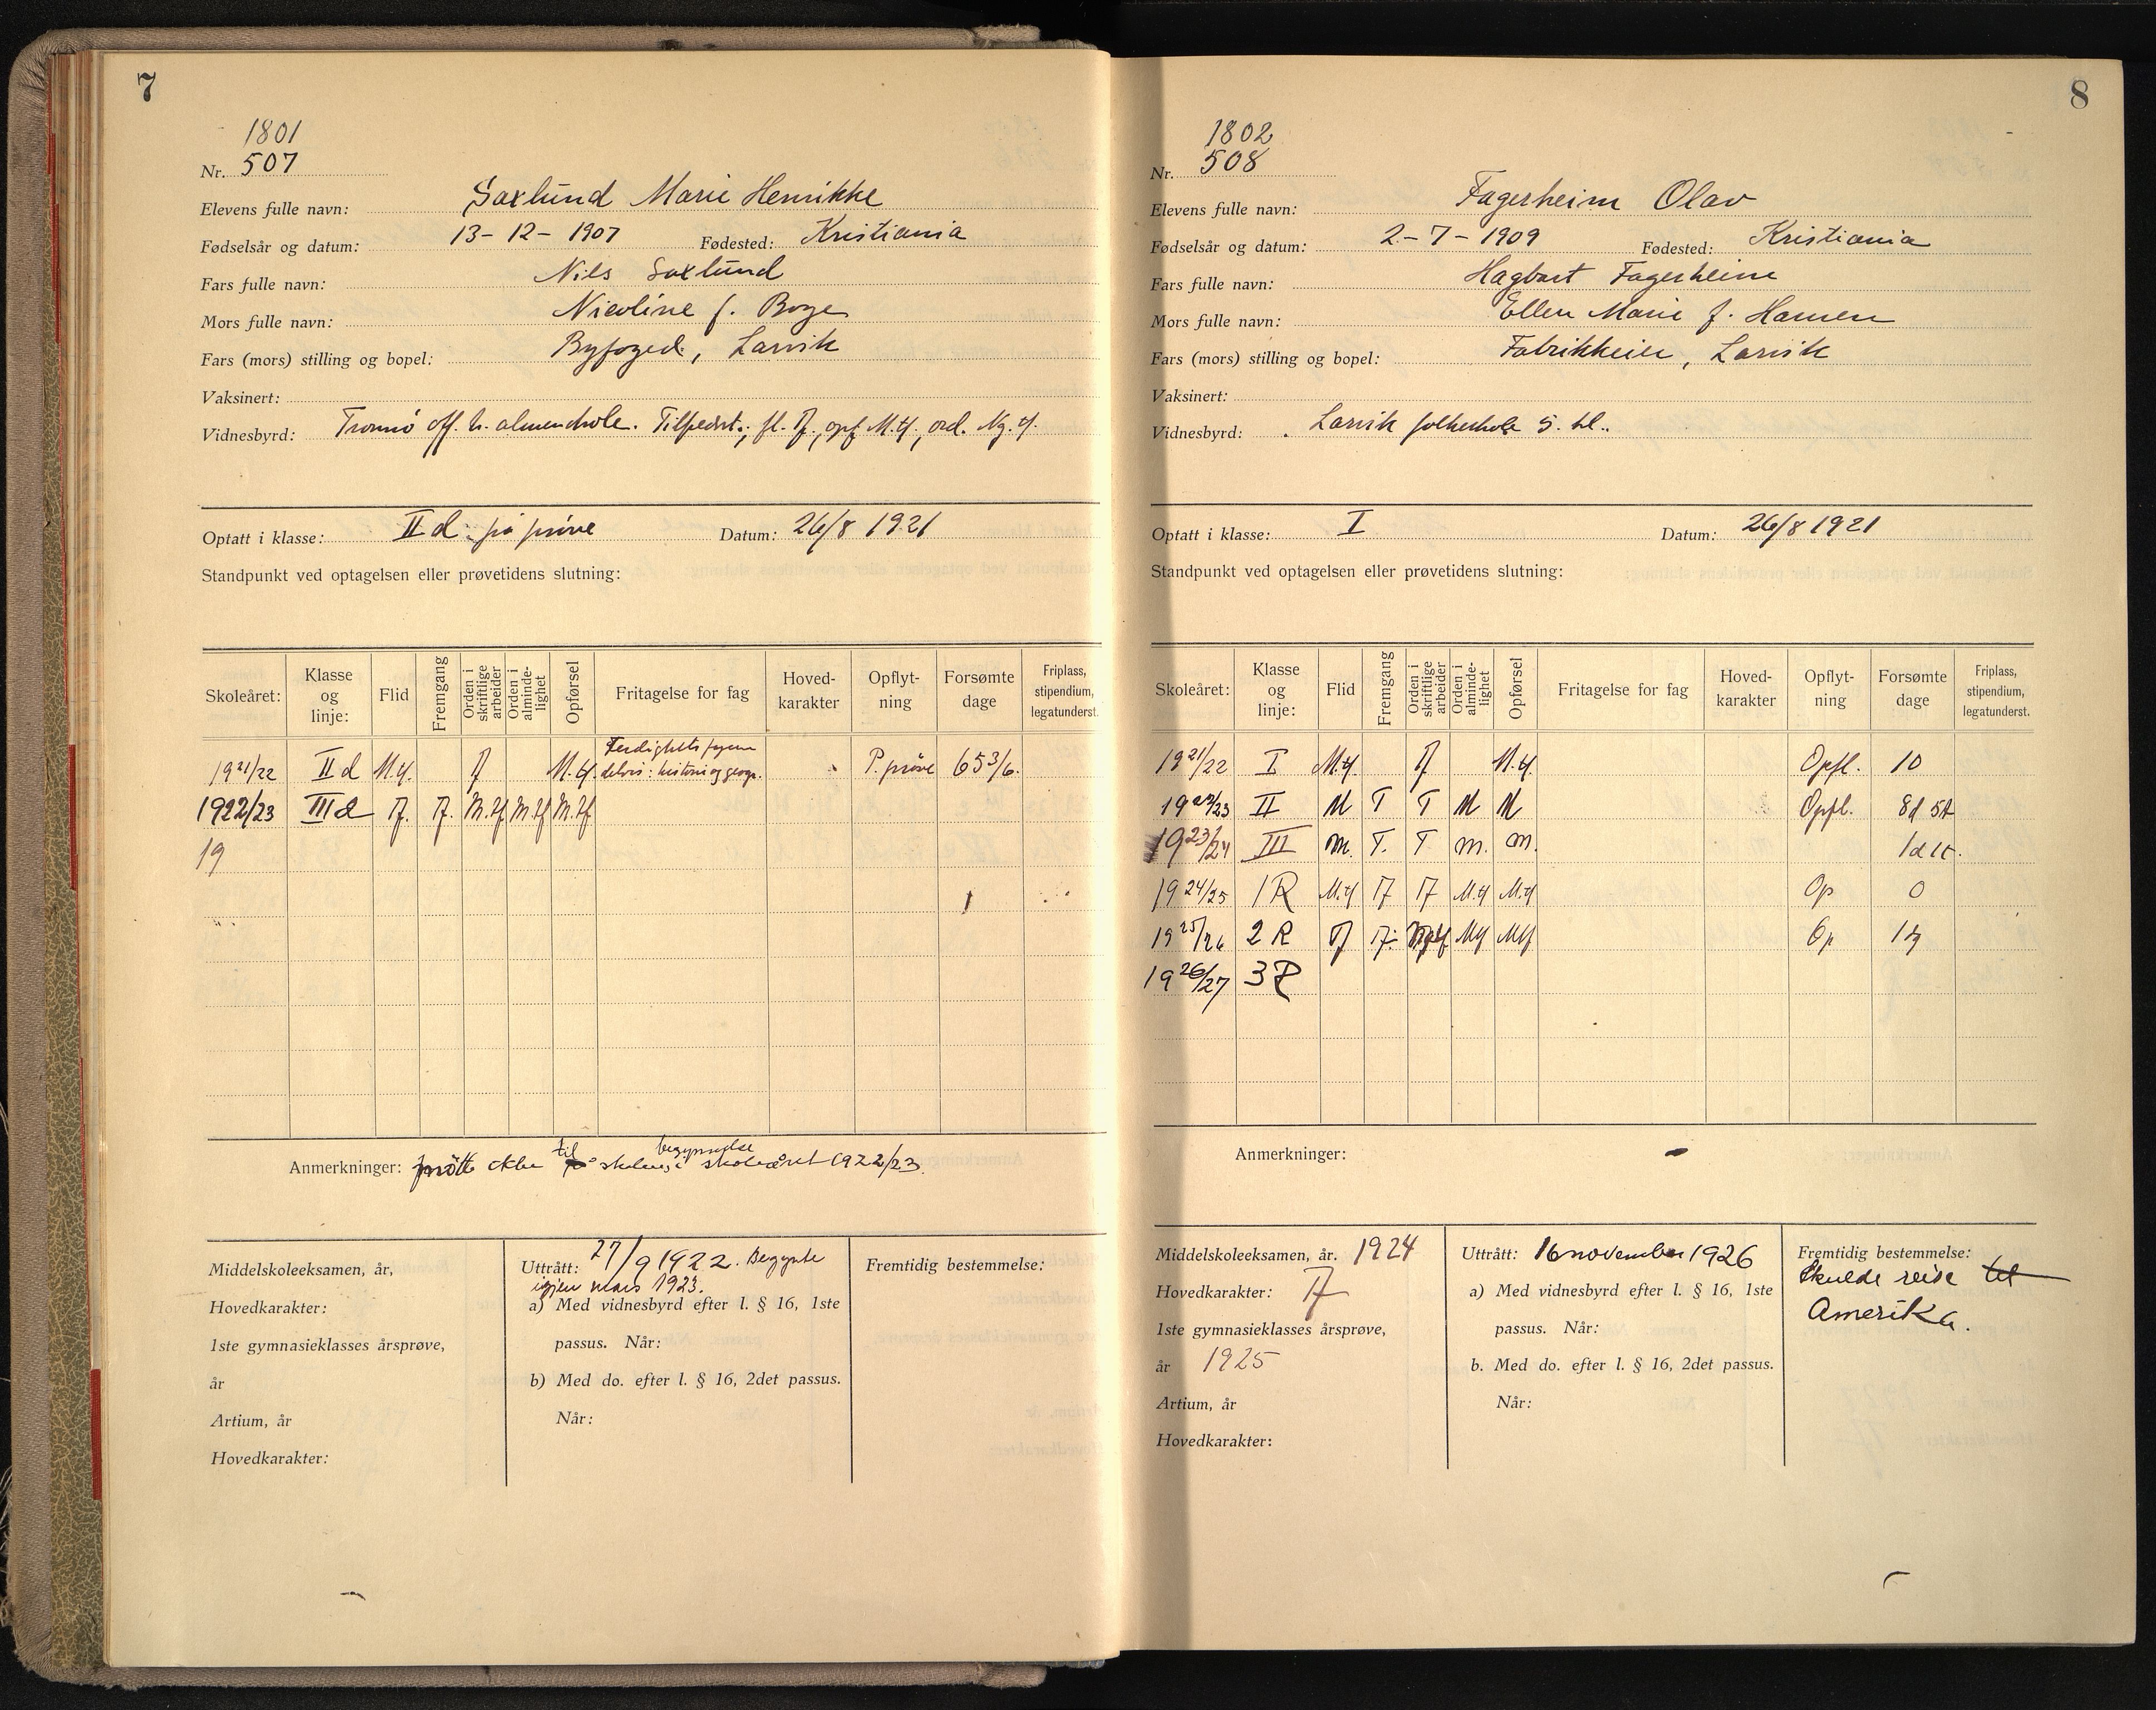 7
1801
Nr. 507
Elevens fulle navn: Saxlund Marie Henrikke
Fødselsår og datum: 13-12-1907 Fødested: Kristiania
Fars fulle navn: Nils Saxlund
Mors fulle navn: Nicoline f. Boye
Fars (mors) stilling og bopel: Byfoged, Larvik
Vaksinert:
Vidnesbyrd: Tromsø off. h. almenskole. Tilfredst., fl. T., opf. M.tf., ord. Ng. tf.
Optatt i klasse: II d. på prøve Datum: 26/8 1921
Standpunkt ved optagelsen eller prøvetidens slutning:
Skoleåret: Klasse og linje: Flid Fremgang Orden i skriftlige arbeider Orden i alminde-lighet Opførsel Fritagelse for fag Hoved-karakter Opflyt-ning Forsømte dage Friplass, stipendium, legatunderst.
1921/22 II d M.tf. T M.tf. Ferdighetsfagene delvis: historie og geogr. P. prøve 65 3/6.
1922/23 III d T. T. M.tf M.tf M.tf
19
Anmerkninger: møtte ikke til skolens begynnelse skoleåret 1922/23.
Middelskoleeksamen, år,
Hovedkarakter:
1ste gymnasieklasses årsprøve,
år
Artium, år
Hovedkarakter:
Uttrått: 27/9 1922. Begynte
igjen mars 1923.
a) Med vidnesbyrd efter l. § 16, 1ste
passus. Når:
b) Med do. efter l. § 16, 2det passus.
Når:
Fremtidig bestemmelse:
8
1802
Nr. 508
Elevens fulle navn: Fagerheim Olav
Fødselsår og datum: 2-7-1909 Fødested: Kristiania
Fars fulle navn: Hagbart Fagerheim
Mors fulle navn: Ellen Marie f. Hansen
Fars (mors) stilling og bopel: Fabrikkeier, Larvik
Vaksinert:
Vidnesbyrd: Larvik folkeskole 5. kl.
Optatt i klasse: I Datum: 26/8 1921
Standpunkt ved optagelsen eller prøvetidens slutning:
Skoleåret: Klasse og linje: Flid Fremgang Orden i skriftlige arbeider Orden i alminde-lighet Opførsel Fritagelse for fag Hoved-karakter Opflyt-ning Forsømte dage Friplass, stipendium, legatunderst.
1921/22 I M.tf. T M.tf. Opfl. 10
1922/23 II M T T M M Opfl. 8d 5t
1923/24 III m. T. T m. m. 1d 1t.
1924/25 1R M.tf T T M.tf M.tf Op 0
1925/26 2 R T T Mtf Mtf Op
1926/27 3R
Anmerkninger:
Middelskoleeksamen, år. 1924
Hovedkarakter: T
1ste gymnasieklasses årsprøve,
år 1925
Artium, år
Hovedkarakter:
Uttrått: 16 november 1926
a) Med vidnesbyrd efter l. § 16, 1ste
passus. Når:
b. Med do. efter l. § 16, 2det passus.
Når:
Fremtidig bestemmelse:
Skulde reise til
Amerika.